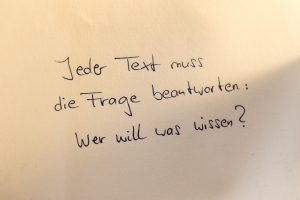 Jeder Text muss
die Frage beantworten:
Wer will was wissen?